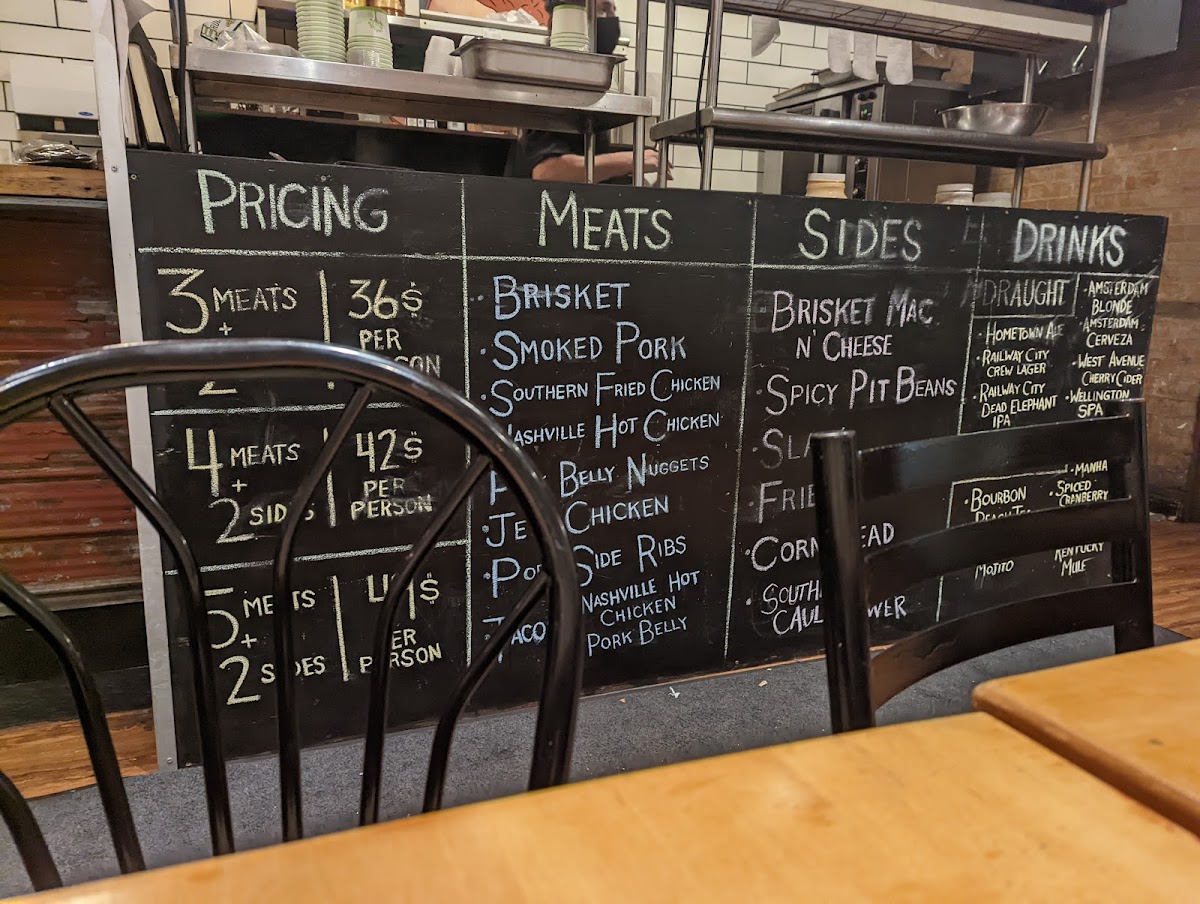 PRICING
3 MEATS
+
2
36$
PER
4 MEATS
+
2
42$
PER
PERSON
5
+
2 SIDES
$
MEATS
BRISKET
SMOKED PORK
SOUTHERN FRIED CHICKEN
HOT CHICKEN
BELLY NUGGETS
CHICKEN
SIDE RIBS
NASHVILLE HOT
CHICKEN
PORK BELLY
SIDES
BRISKET MAC
N' CHEESE
SPICY PIT BEANS
DRINKS
DRAUGHT
HOMETOWN ALE
RAILWAY CITY
CREW LAGER
RAILWAY CITY
DEAD ELEPHANT
IPA
AMSTERDAM
BLONDE
AMSTERDAM
CERVEZA
WEST AVENUE
CHERRY CIDER
WELLINGTON
SPA
BOURBON
MOJITO
SPICED
CRANBERRY
KENTUCKY
MULE